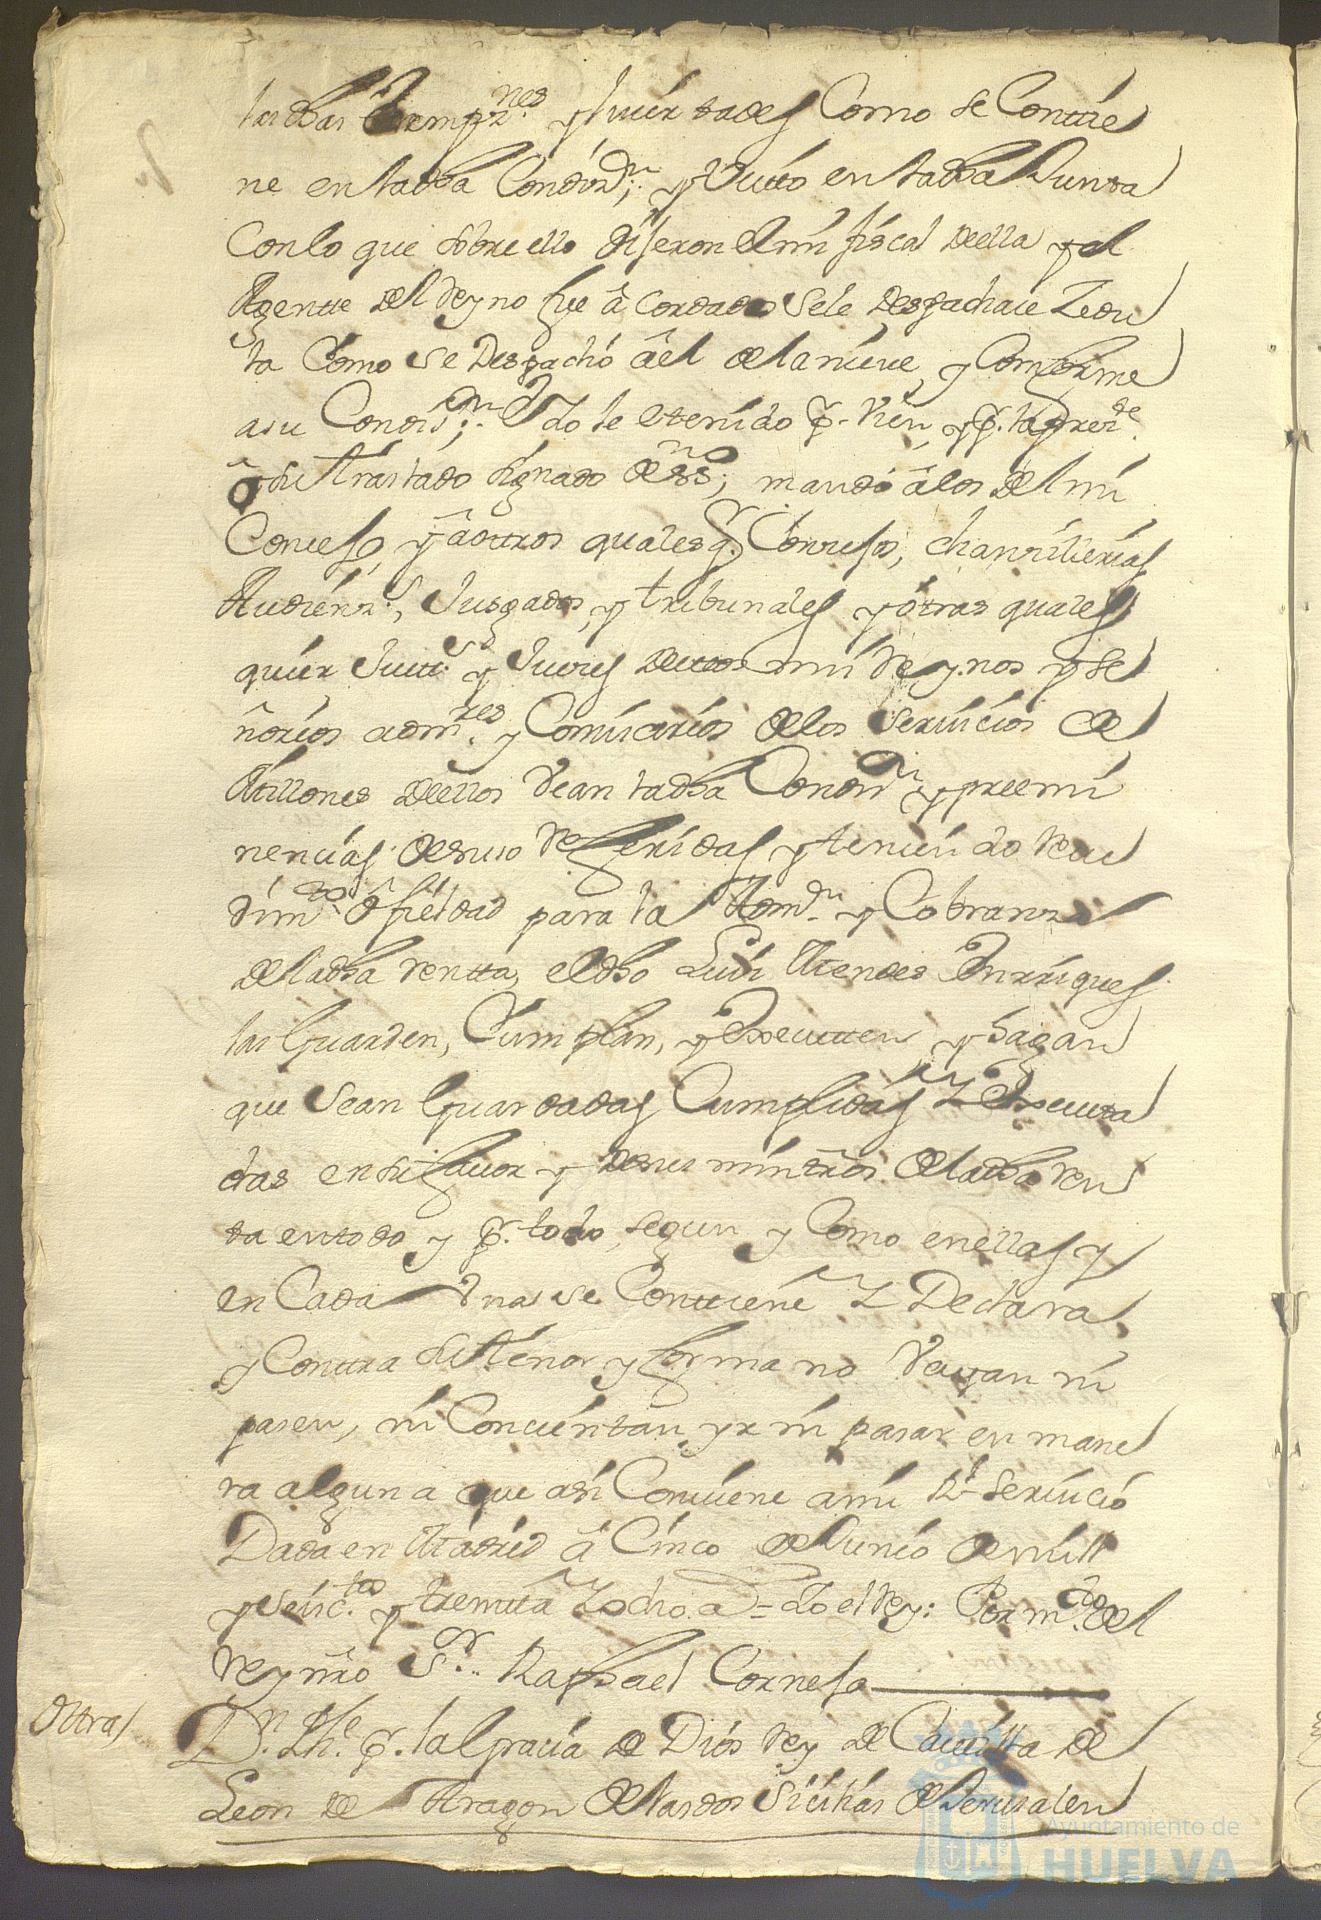 las dhas Exempz.nes y livertades Como se Contie
ne en la dha Condiz.n; y Visto en la dha Junta
Con lo que sobre ello dijeron el mi fiscal della y el
Agente del Reyno fue acordado sele despachase Zedu
la Como se Despachó â el de la nieve, y Conforme
a su Condiz.on Y lo he tenido p.r vien, y p.r la press.te
o su traslado signado de ss.no; mando â los del mi
Consejo, y â otros qualesq.r Consejos, chansillerias
Audienz.s, Jusgados, y tribunales y otras quales
quier Just.s y Jueses destos mis Reynos y se
ñorios adm.res y Comisarios de los servicios de
Millones dellos Vean la dha Condiz.n y preemi
nencias de suso Referidas y teniendo recu
dim.to ô fieldad para la Adm.on y Cobranza
de la dha rentta, el dho Luis Mendes Enrriques
las Guarden, Cumplan, y Executten, y hagan
que sean Guardadas Cumplidas Y Executa
das en su favor y de sus minsitros de la dha ren
ta en todo y p.r todo, segun y Como en ellas y
en Cada Una se Contiene Y Declara
y Contra su tenor y forma no Vayan ni
pasen, ni Concientan yr ni pasar en mane
ra alguna que asi Conviene a mi R.l servicio
Dada en Madrid â Cinco de Junio de mill
y seisc.tos y treinta Y ocho a.s = Yo el Rey: Por m.do del
Rey nrô S.or Raphael Cornejo
Ottra
D.n Ph.e p.r la Gracia de Dios rey de Castilla de
Leon de Aragon de las dos Sicilias de Jerusalen
Ayuntamiento de
HUELVA